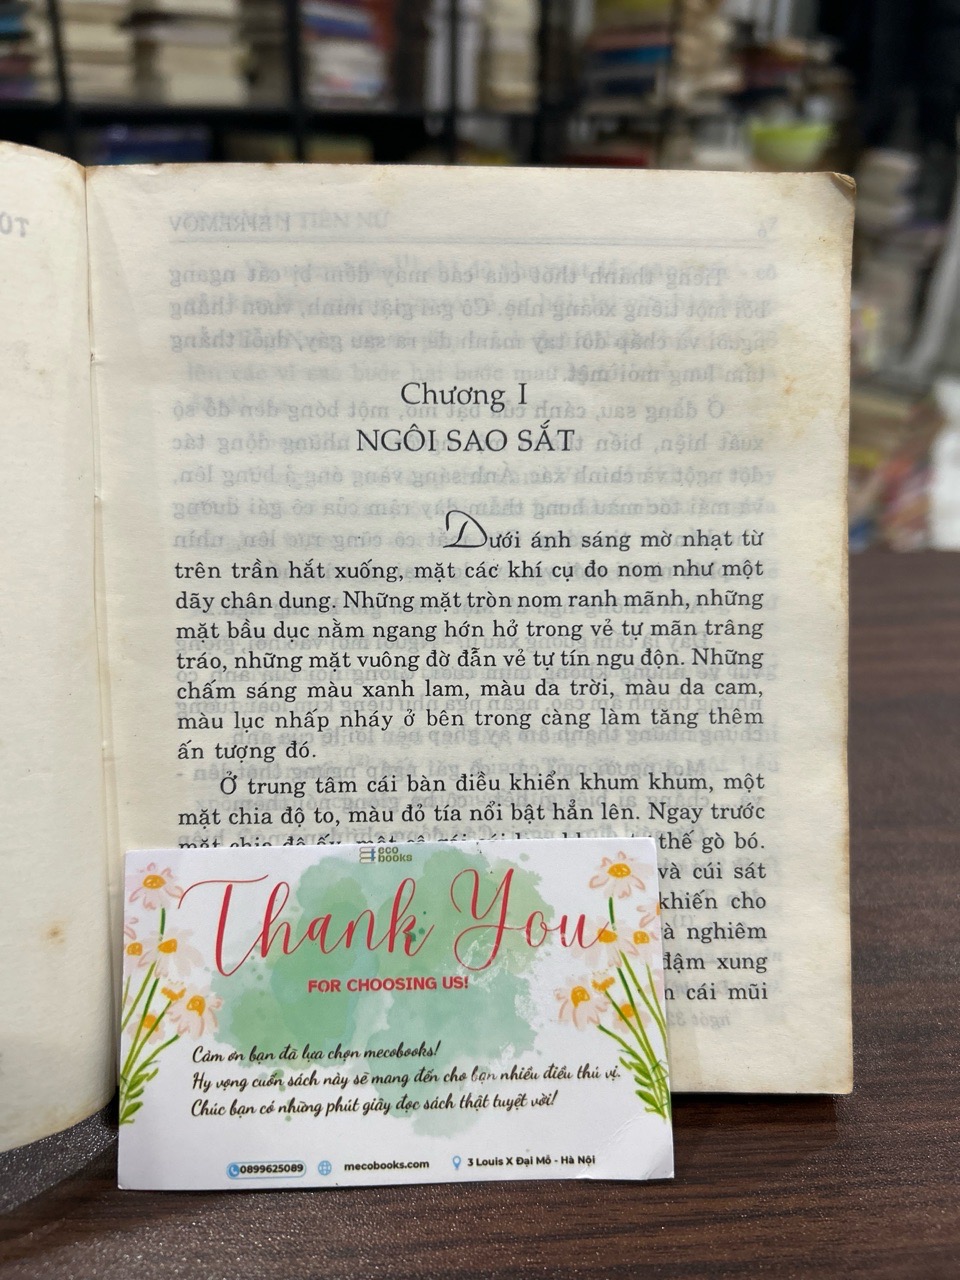 Chương I
NGÔI SAO SẮT
Dưới ánh sáng mờ nhạt từ
trên trần hắt xuống, mặt các khí cụ đo nom như một
dãy chân dung. Những mặt tròn nom ranh mãnh, những
mặt bầu dục nằm ngang hớn hở trong vẻ tự mãn trâng
tráo, những mặt vuông đờ đẫn vẻ tự tín ngu độn. Những
chấm sáng màu xanh lam, màu da trời, màu da cam,
màu lục nhấp nháy ở bên trong càng làm tăng thêm
ấn tượng đó.
Ở trung tâm cái bàn điều khiển khum khum, một
mặt chia độ to, màu đỏ tía nổi bật hẳn lên. Ngay trước
mặt chia độ ấy, một cô gái thế gò bó.
và cúi sát
khiến cho
nghiêm
đậm xung
cái mũi
eco
books
Thank You
FOR CHOOSING US!
Cảm ơn bạn đã lựa chọn mecobooks!
Hy vọng cuốn sách này sẽ mang đến cho bạn nhiều điều thú vị.
Chúc bạn có những phút giây đọc sách thật tuyệt vời!
0899625089 mecobooks.com 3 Louis X Đại Mỗ - Hà Nội